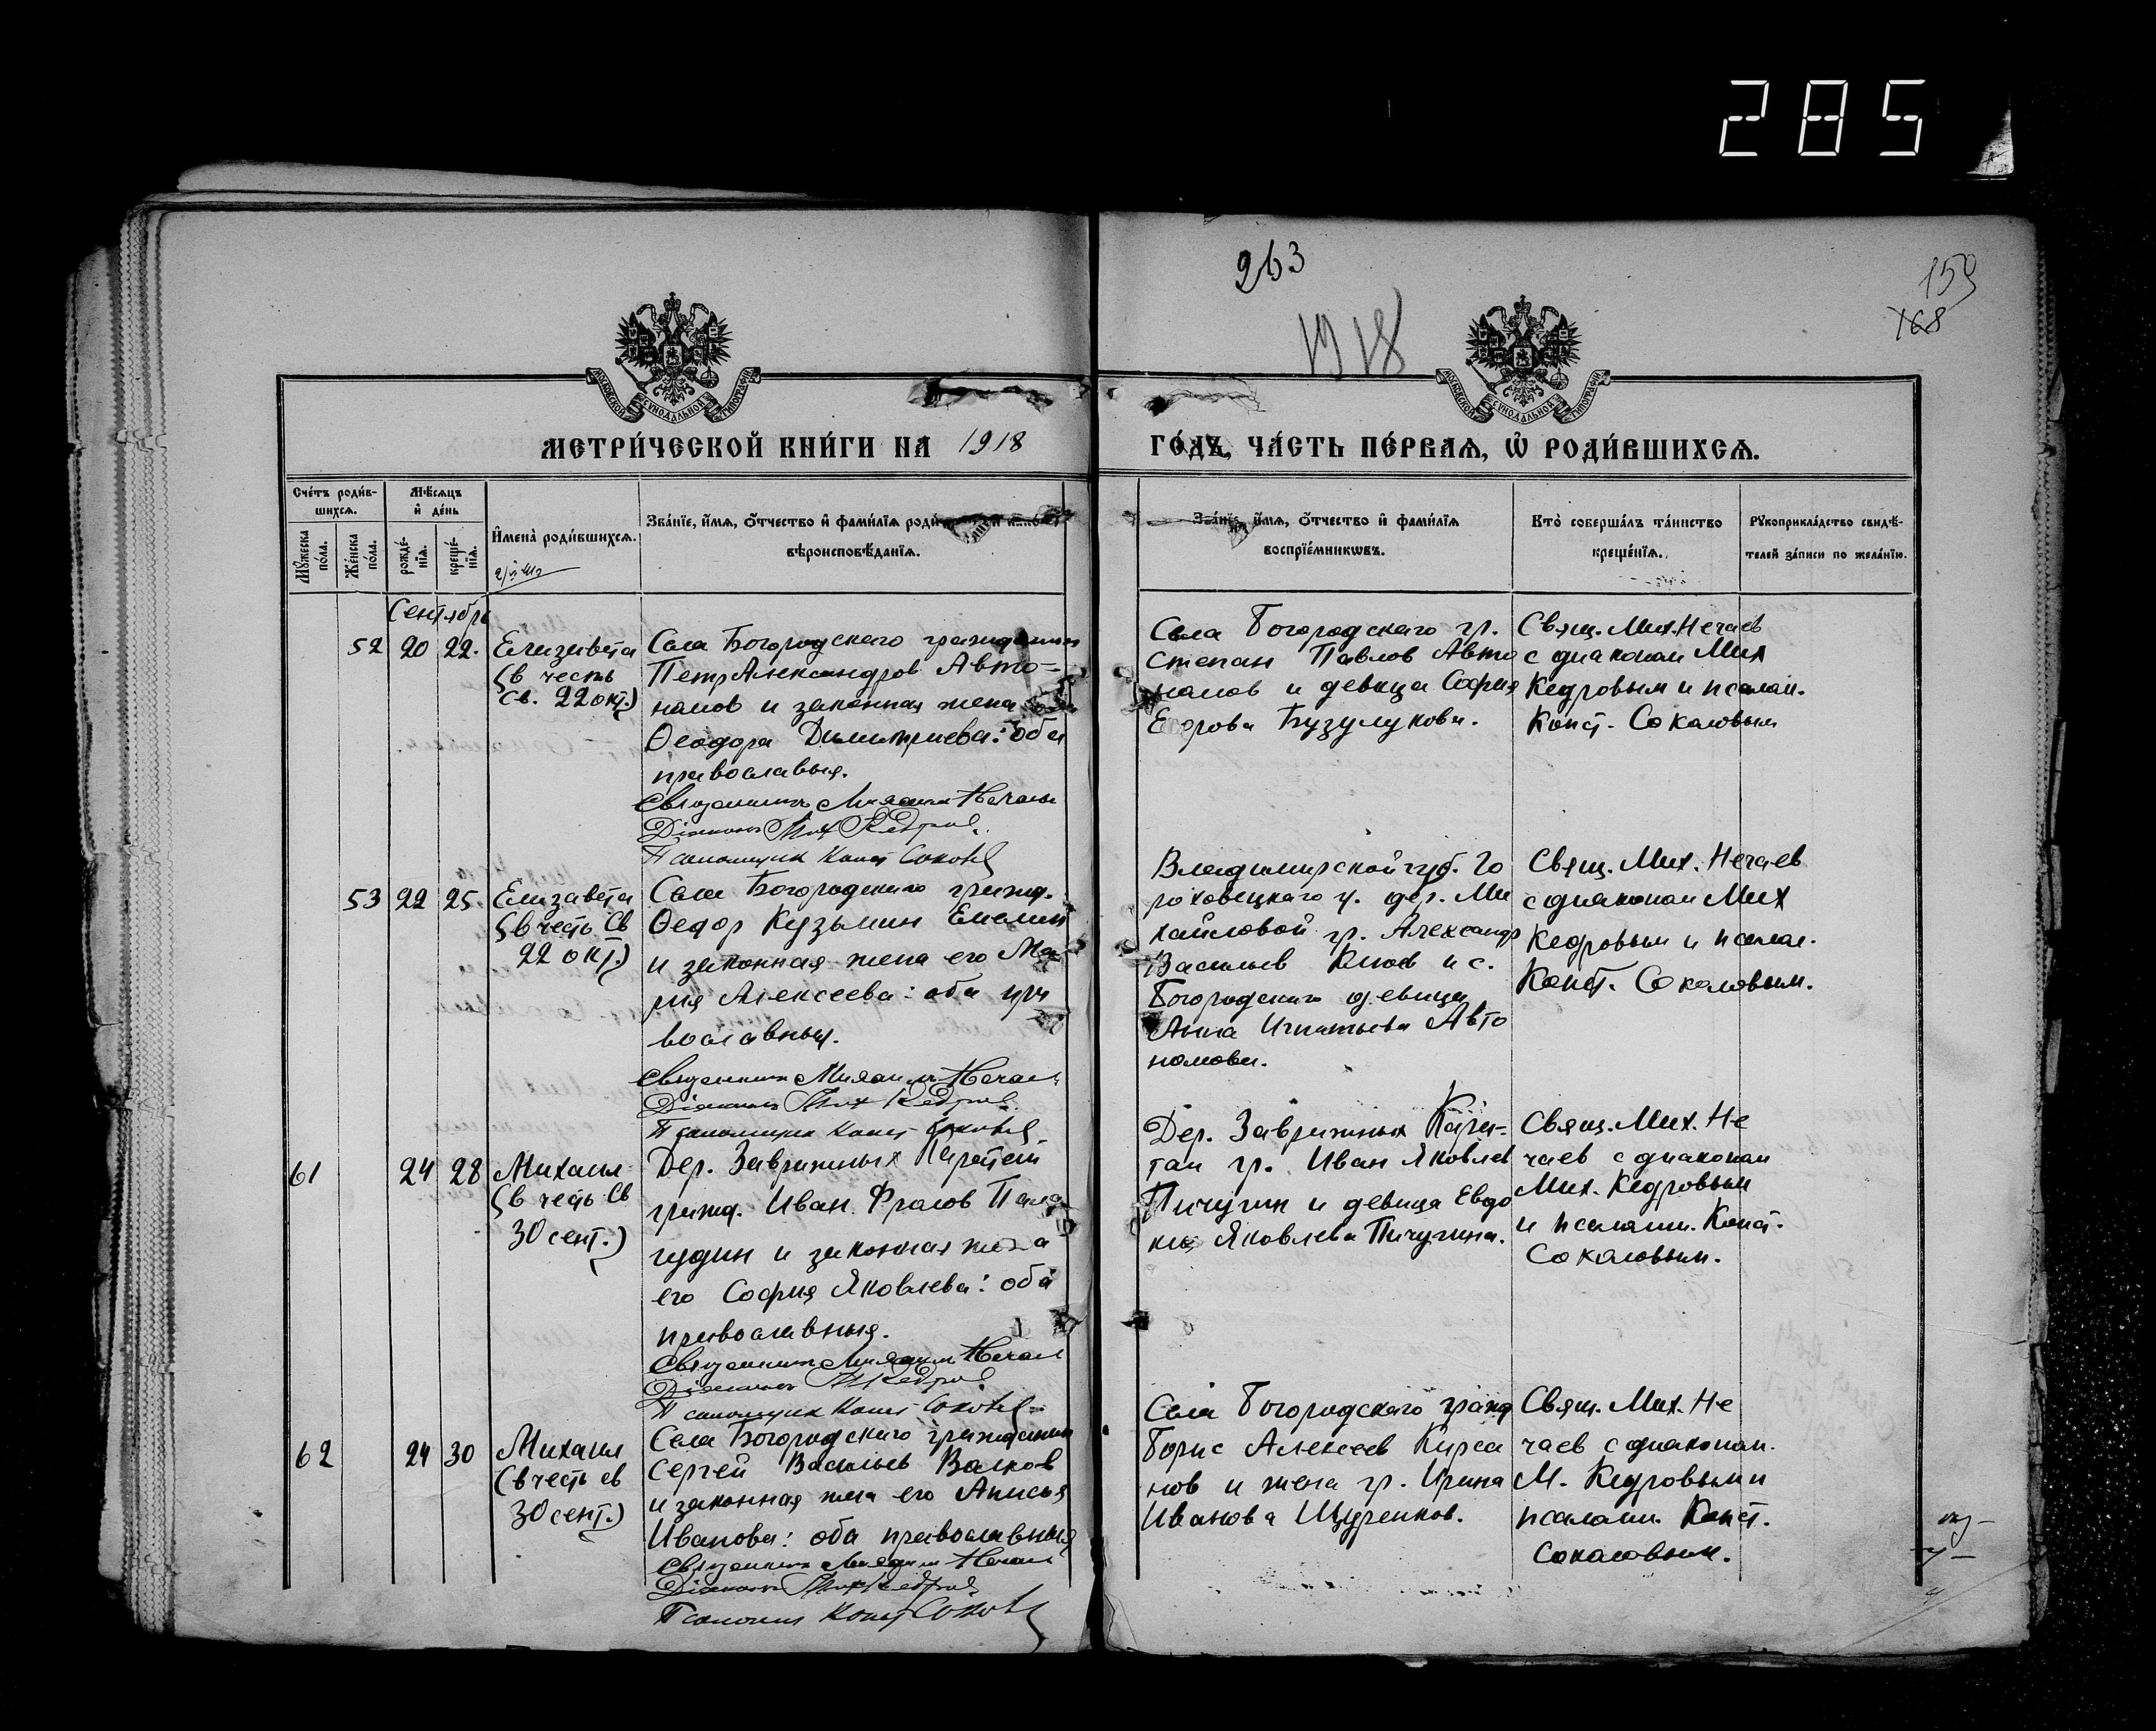 285
263
1918
159
168
МОСКОВСКОЙ СѴНОДАЛЬНОЙ ТИПОГРАФІИ
МОСКОВСКОЙ СѴНОДАЛЬНОЙ ТИПОГРАФІИ
МЕТРИ́ЧЕСКОЙ КНИ́ГИ НА 1918
ГО́ДЪ, ЧА́СТЬ ПЕ́РВАѦ, Ѡ РОДИ́ВШИХСѦ.
Сче́тъ роди́в-
шихсѧ.
Мѣ́сѧцъ
и҆ де́нь
Мꙋ́жеска по́ла.
Же́нска по́ла.
рожде́-нїѧ.
креще́-нїѧ.
И҆мена̀ роди́вшихсѧ.
Зва́нїе, и҆́мѧ, ѻ҆́тчество и҆ фами́лїѧ роди́
вѣроисповѣ́данїѧ.
Зва́нїе, и҆́мѧ, ѻ҆́тчество и҆ фами́лїѧ
воспрїе́мникѡвъ.
Кто̀ соверша́лъ та́инство
креще́нїѧ.
Рꙋкоприкла́дство свидѣ́-
телей за́писи по жела́нїю.
Сентябрь
52 20 22.
Елизавета
(в честь
св. 22 окт.)
Села Богородскаго гражданин
Петр Александров Авто-
намов и законная жена
Ѳеодора Димитриева: оба
православныя.
Священникъ Михаилъ Нечаев
Діаконъ Мих Кедров
Псаломщик Конст Соколов
Села Богородскаго гр.
Степан Павлов Авто
намов и девица София
Егорова Бузулукова.
Свящ. Мих. Нечаев
с диаконом Мих
Кедровым и псалом.
Конст. Соколовым
53 22 25.
Елизавета
(в честь Св
22 окт.)
Села Богородскаго гражд.
Ѳедор Кузьмин Емелин
и законная жена его Ма
рия Алексеева: оба пра
вославныя.
Священник Михаилъ Нечаев
Діаконъ Мих Кедров
Псаломщик Конст Соколов
Владимирской губ. Го
роховецкаго у. дер. Ми
хайловой гр. Александр
Васильев и с.
Богородскаго девица
Анна Игнатьева Авто
номова.
Свящ. Мих. Нечаев
с диаконом Мих
Кедровым и псалом.
Конст. Соколовым.
61 24 28
Михаил
(в честь Св
30 сент.)
Дер. Завражных
гражд. Иван Фролов Пала
гудин и законная жена
его София Яковлева: оба
православныя.
Священникъ Михаилъ Нечаев
Діаконъ М Кедров
Псаломщик Конст Соколов
Дер. Завражных
гр. Иван Яковлев
Пичугин и девица Евдо
кия Яковлева Пичугина.
Свящ. Мих. Не
чаев с диаконом
Мих. Кедровым
и псаломщ. Конст.
Соколовым.
62 24 30
Михаил
(в честь св
30 сент.)
Села Богородскаго гражданин
Сергей Васильев Волков
и законная жена его Анисья
Иванова: оба православныя
Священникъ Михаилъ Нечаев
Діаконъ Мих Кедров
Псаломщ Конст Соколов
Села Богородскаго гражд
Борис Алексеев Кирса
нов и жена гр. Ирина
Иванова Щуренков.
Свящ. Мих. Не
чаев с диаконом.
М. Кедровым и
псаломщ. Конст.
Соколовым.